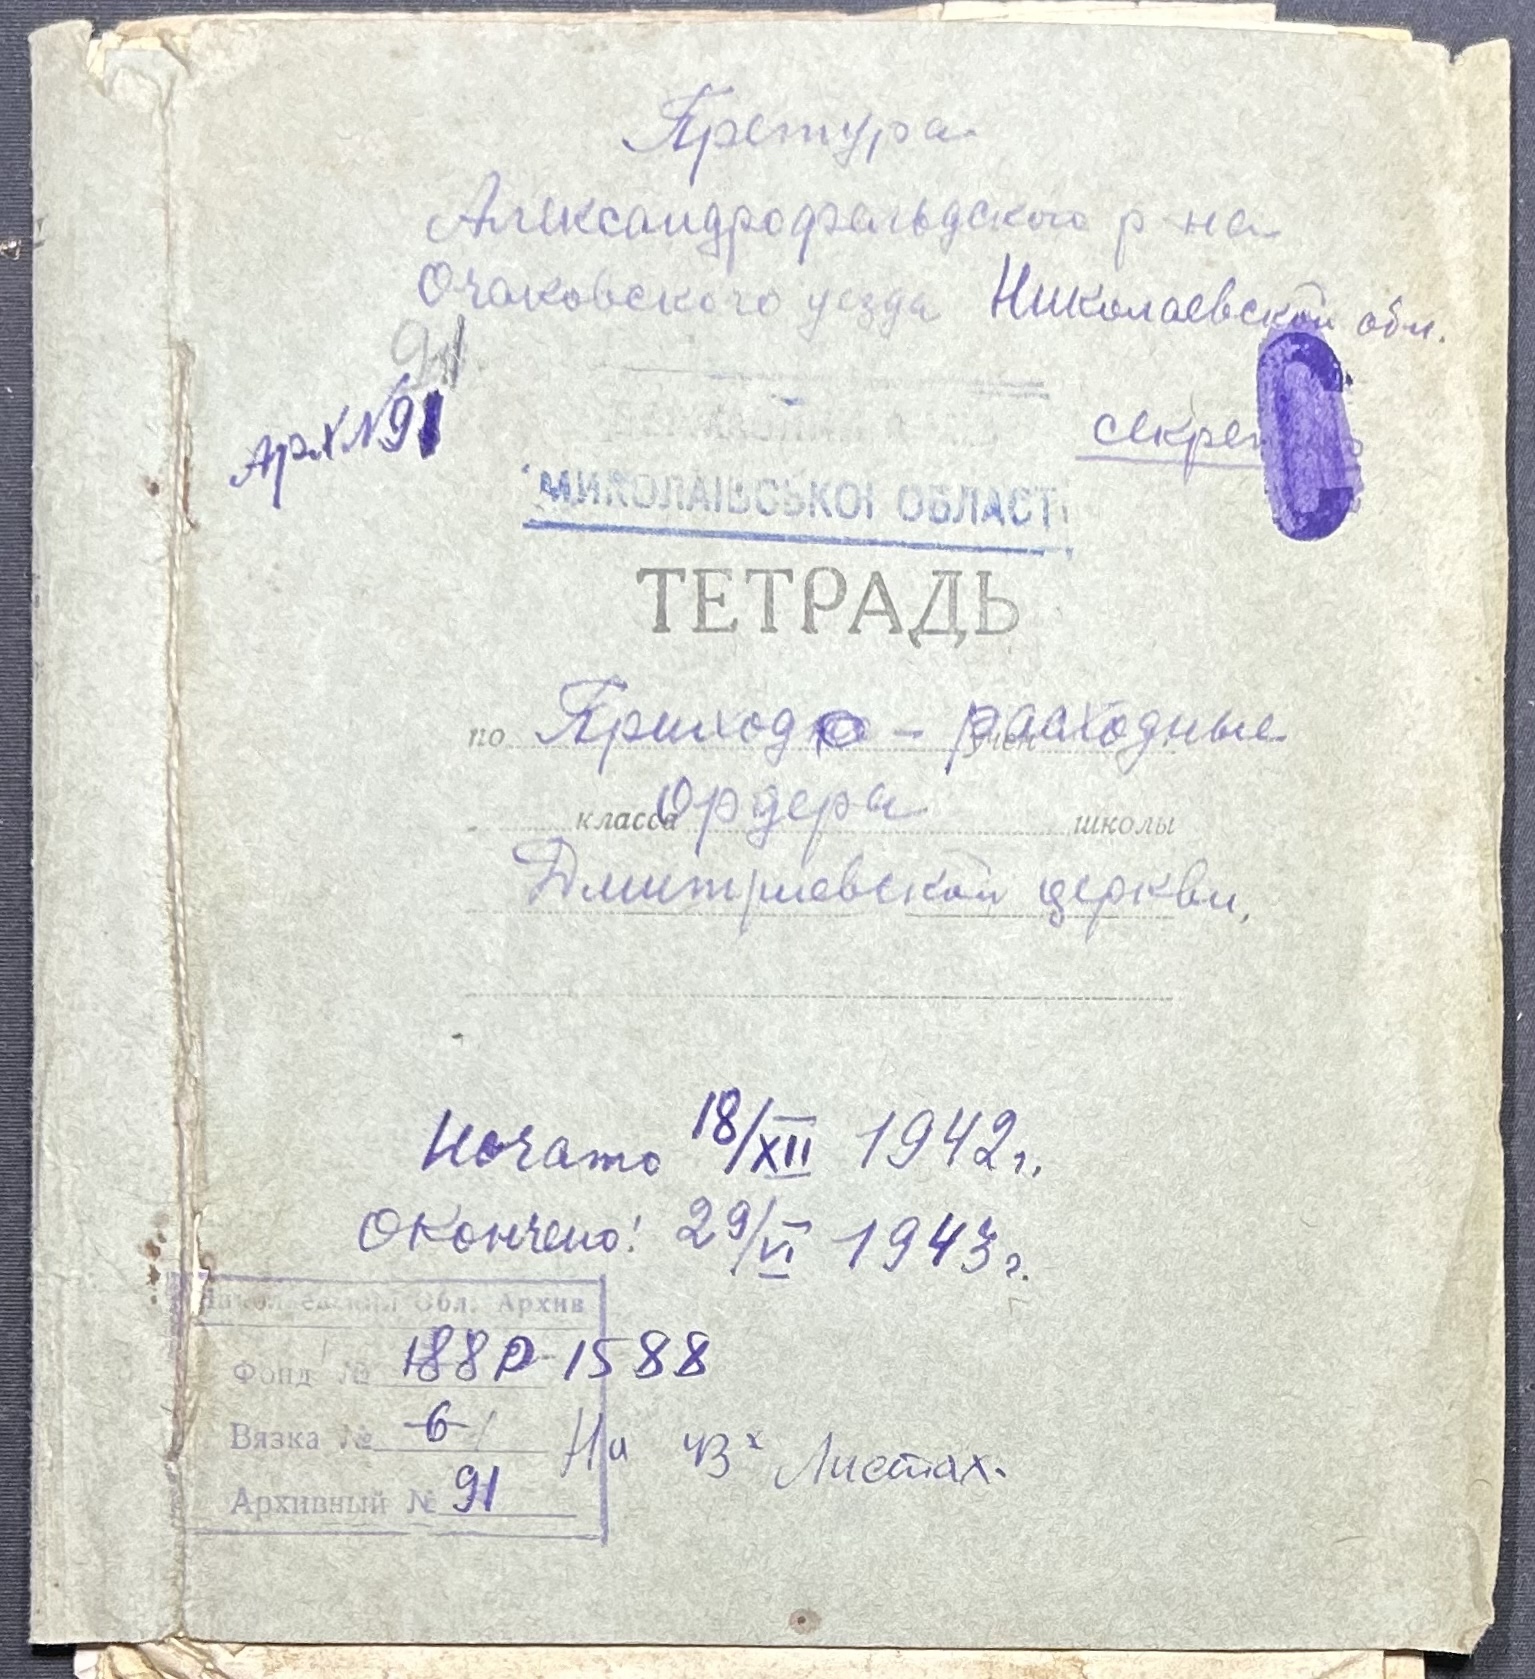 Претура
Александрофельдского р-на
Очаковского уезда Николаевской обл.
91
Арх №91
секретно
МИКОЛАЇВСЬКОЇ ОБЛАСТІ
ТЕТРАДЬ
по Приходо - расходные учен
класса Ордера школы
Дмитриевской церкви.
Начато 18/XII 1942г.
Окончено: 29/VI 1943г.
Николаевский Обл. Архив
Фонд № 188 Р-1588
Вязка № 6 На 43х Листах.
Архивный № 91